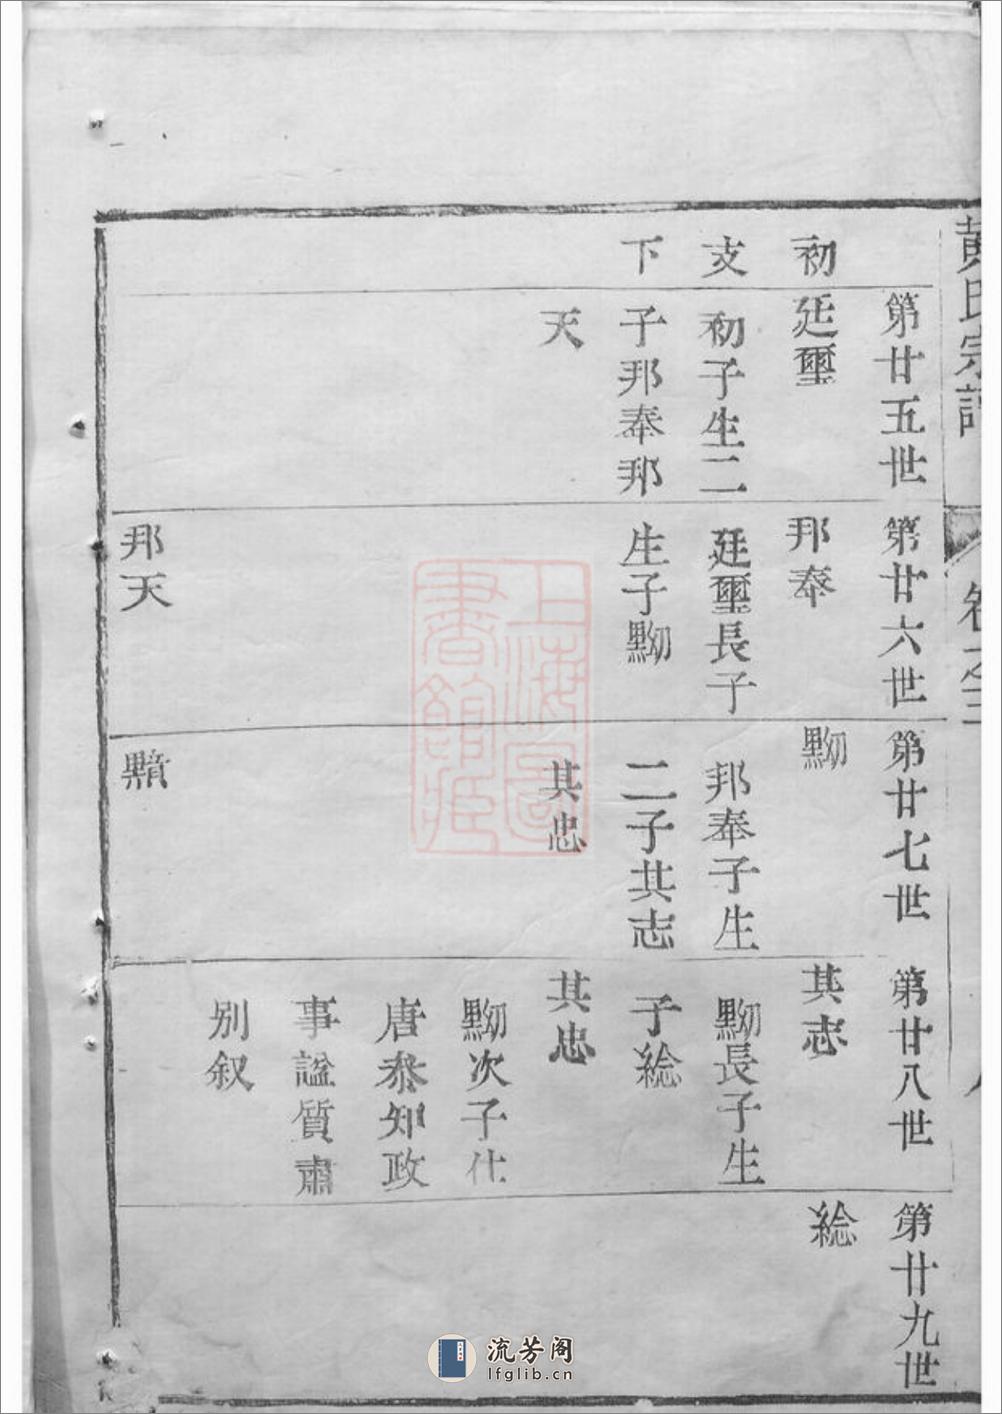 黄氏宗譜
卷之三
初支下
第廿五世
廷璽
初子生二
子邦奉邦
天
第廿六世
邦奉
廷璽長子
生子黝
邦天
第廿七世
黝
邦奉子生
二子其志
其忠
第廿八世
其志
黝長子生
子綋
其忠
黝次子仕
唐叅知政
事謚質肅
别叙
第廿九世
上海圖書館藏
流芳阁
lfglib.cn